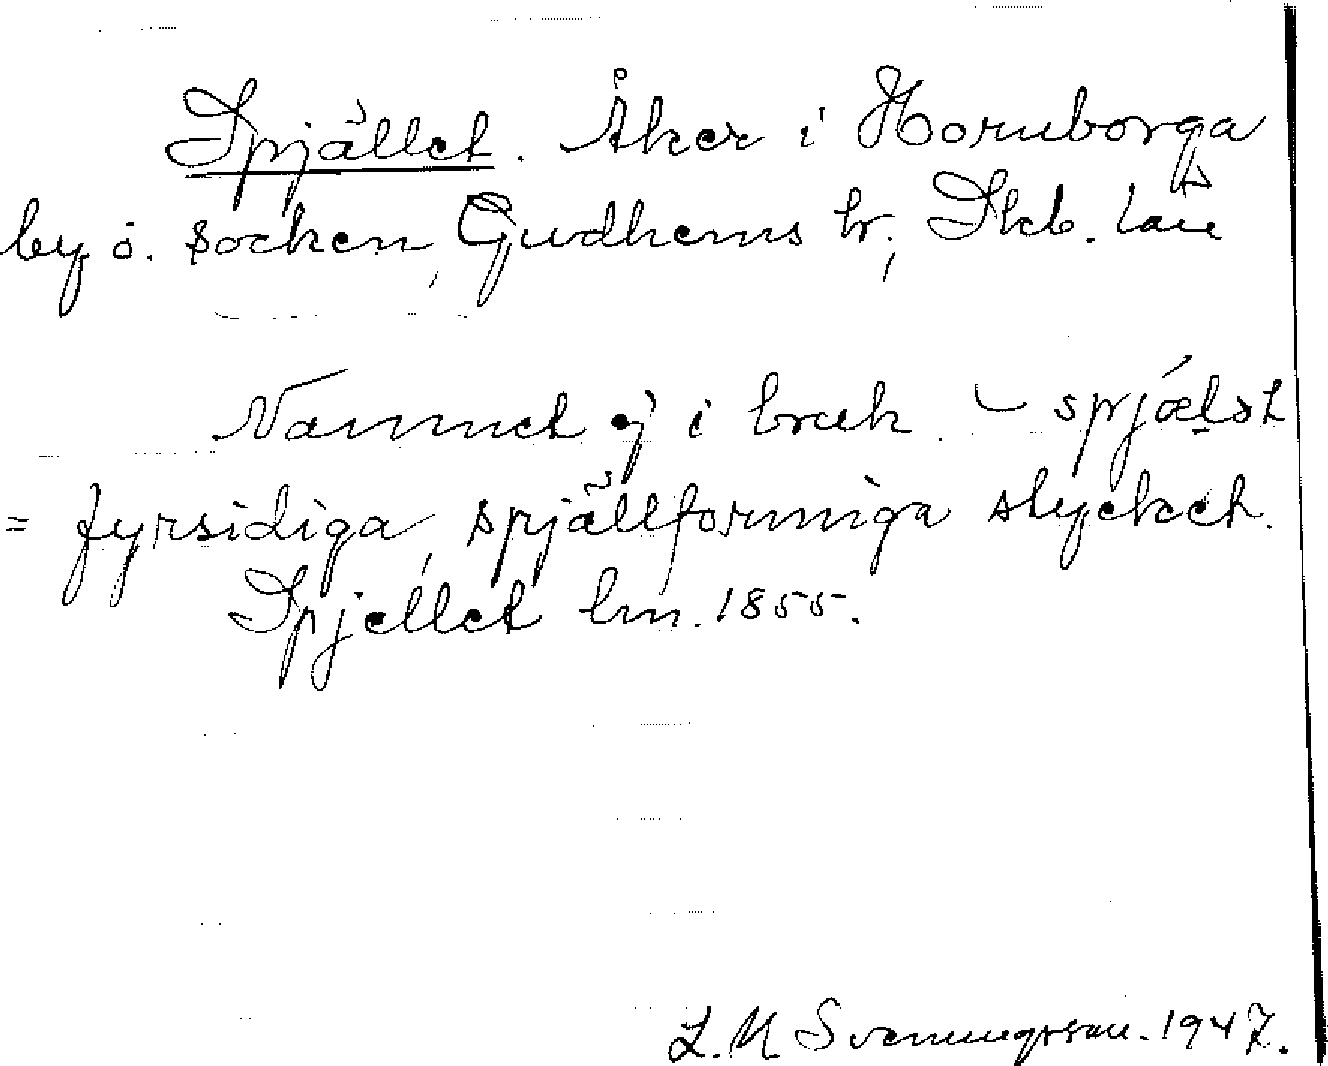 Spjället. Åker i Hornborga
by o. socken, Gudhems hr, Skb. län
Namnet ej i bruk. – spjælət
= fyrsidiga, spjällformiga stycket.
Spjellet lm. 1855.
L. M Svenungsson. 1947.